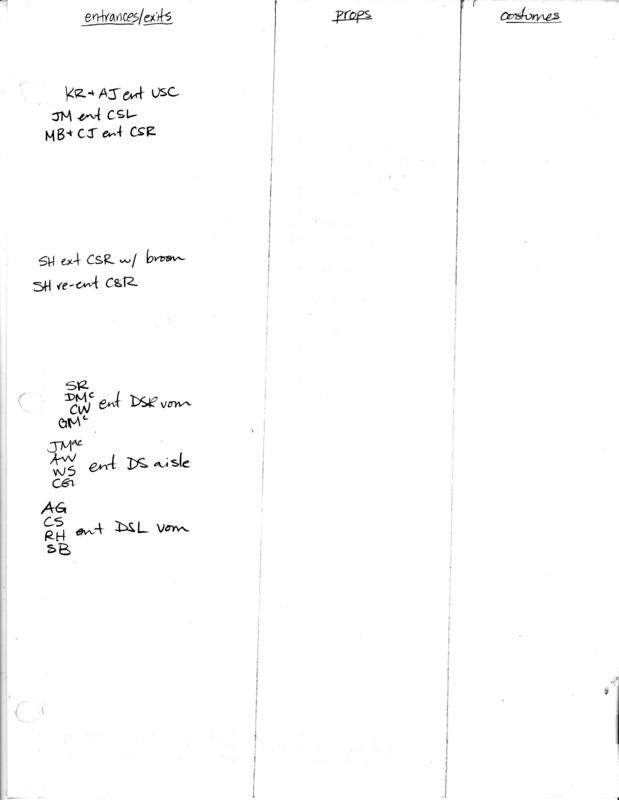 entrances/exits
props
costumes
KR + AJ ent USC
JM ent CSL
MB + CJ ent CSR
SH ext CSR w/ broom
SH re-ent CSR
SR
DMc
CW ent DSR vom
GMc
JMac
AW
WS ent DS aisle
CG
AG
CS
RH ent DSL vom
SB